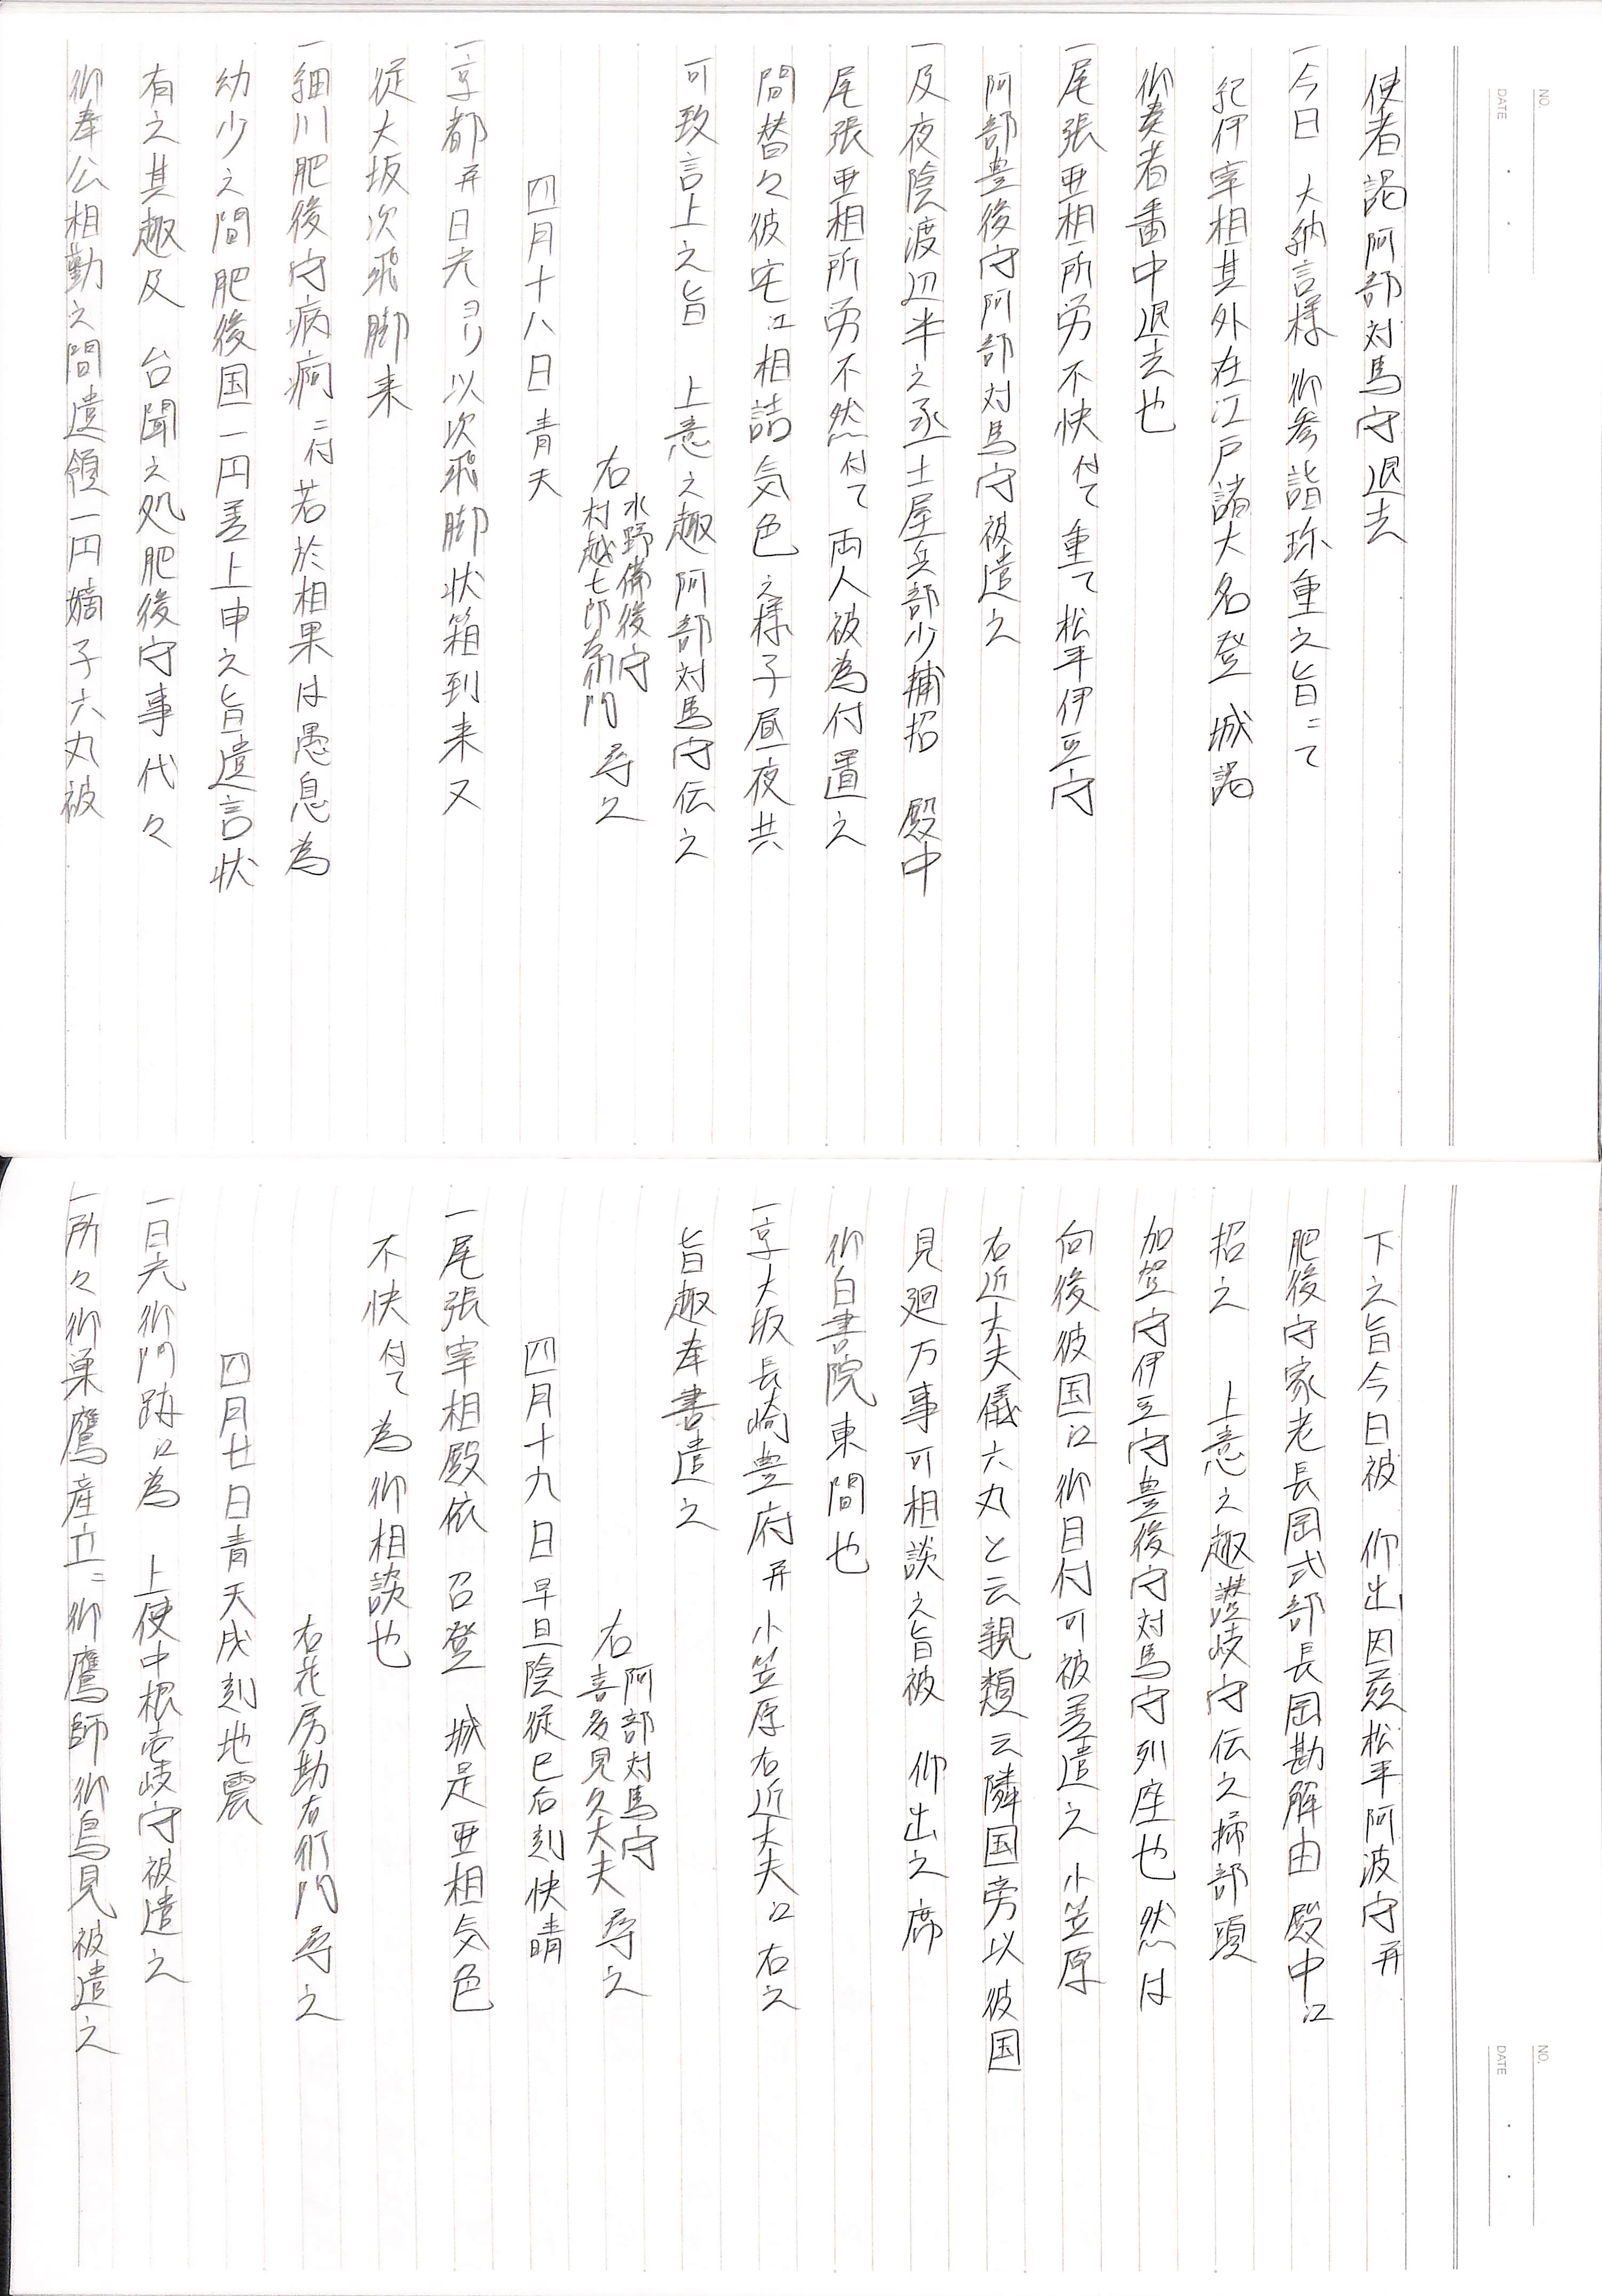 NO.
DATE
使者謁阿部対馬守退去
一今日　大納言様　御参詣珍重之旨ニて
紀伊宰相其外在江戸諸大名登　城謁
御奏者番中退去也
一尾張亜相所労不快付て重て松平伊豆守
阿部豊後守阿部対馬守被遣之
一及夜陰渡辺半之丞土屋兵部少輔招　殿中
尾張亜相所労不然付て両人被為付置之
間替々彼宅江相詰気色之様子昼夜共
可致言上之旨　上意之趣阿部対馬守伝之
右水野備後守
村越七郎右衛門　尋之
四月十八日青天
一京都并日光ヨリ以次飛脚状箱到来又
従大坂次飛脚来
一細川肥後守病痾ニ付若於相果は愚息為
幼少之間肥後国一円差上申之旨遺言状
有之其趣及　台聞之処肥後守事代々
御奉公相勤之間遺領一円嫡子六丸被
NO.
DATE
下之旨今日被　仰出因茲松平阿波守并
肥後守家老長岡式部長岡勘解由　殿中江
招之　上意之趣讃岐守伝之掃部頭
加賀守伊豆守豊後守対馬守列座也然は
向後彼国江御目付可被差遣之小笠原
右近大夫儀六丸と云親類云隣国旁以彼国
見廻万事可相談之旨被　仰出之席
御白書院東間也
一京大坂長崎豊府并小笠原右近大夫江右之
旨趣奉書遣之
右阿部対馬守
喜多見久大夫　尋之
四月十九日早旦陰従巳后刻快晴
一尾張宰相殿依　召登　城是亜相気色
不快付て為御相談也
右花房勘右衛門尋之
四月廿日青天戌刻地震
一日光御門跡江為　上使中根壱岐守被遣之
一所々御巣鷹産立ニ御鷹師御鳥見被遣之